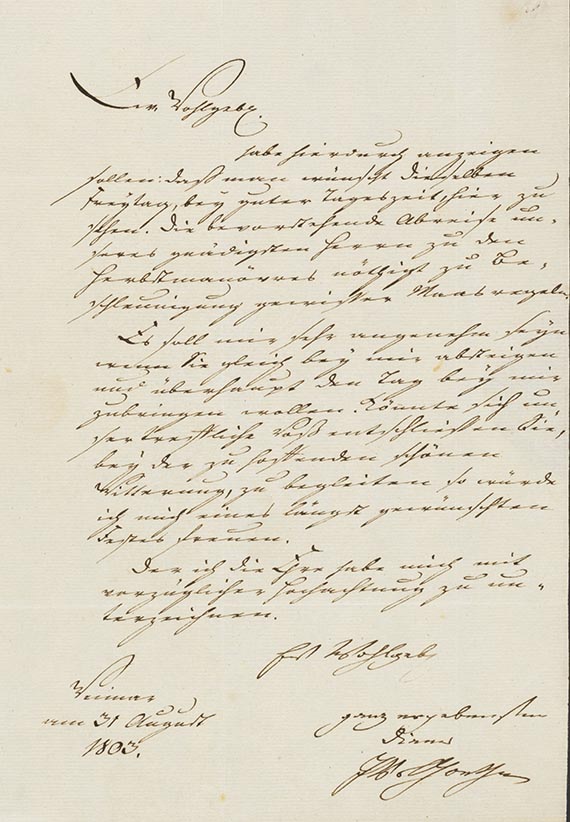 Ew. Wohlgeb.
habe hierdurch anzeigen
sollen: daß man wünscht dieselben
Freytag, bey guter Tageszeit, hier zu
sehen. Die bevorstehende Abreise un-
seres gnädigsten Herrn zu den
Herbstmanövres nöthigt zu Be-
schleunigung gewisser Maasregeln.
Es soll mir sehr angenehm seyn
wenn Sie gleich bey mir absteigen
und überhaupt den Tag bey mir
zubringen wollen. Könnte sich un-
ser trefflicher Voß entschließen Sie,
bey der zu hoffenden schönen
Witterung, zu begleiten so würde
ich mich eines längst gewünschten
Festes freuen.
Der ich die Ehre habe mich mit
vorzüglicher Hochachtung zu un-
terzeichnen.
Ew Wohlgeb
Weimar
am 31 August
1803.
ganz ergebensten
Diener
JWvGoethe